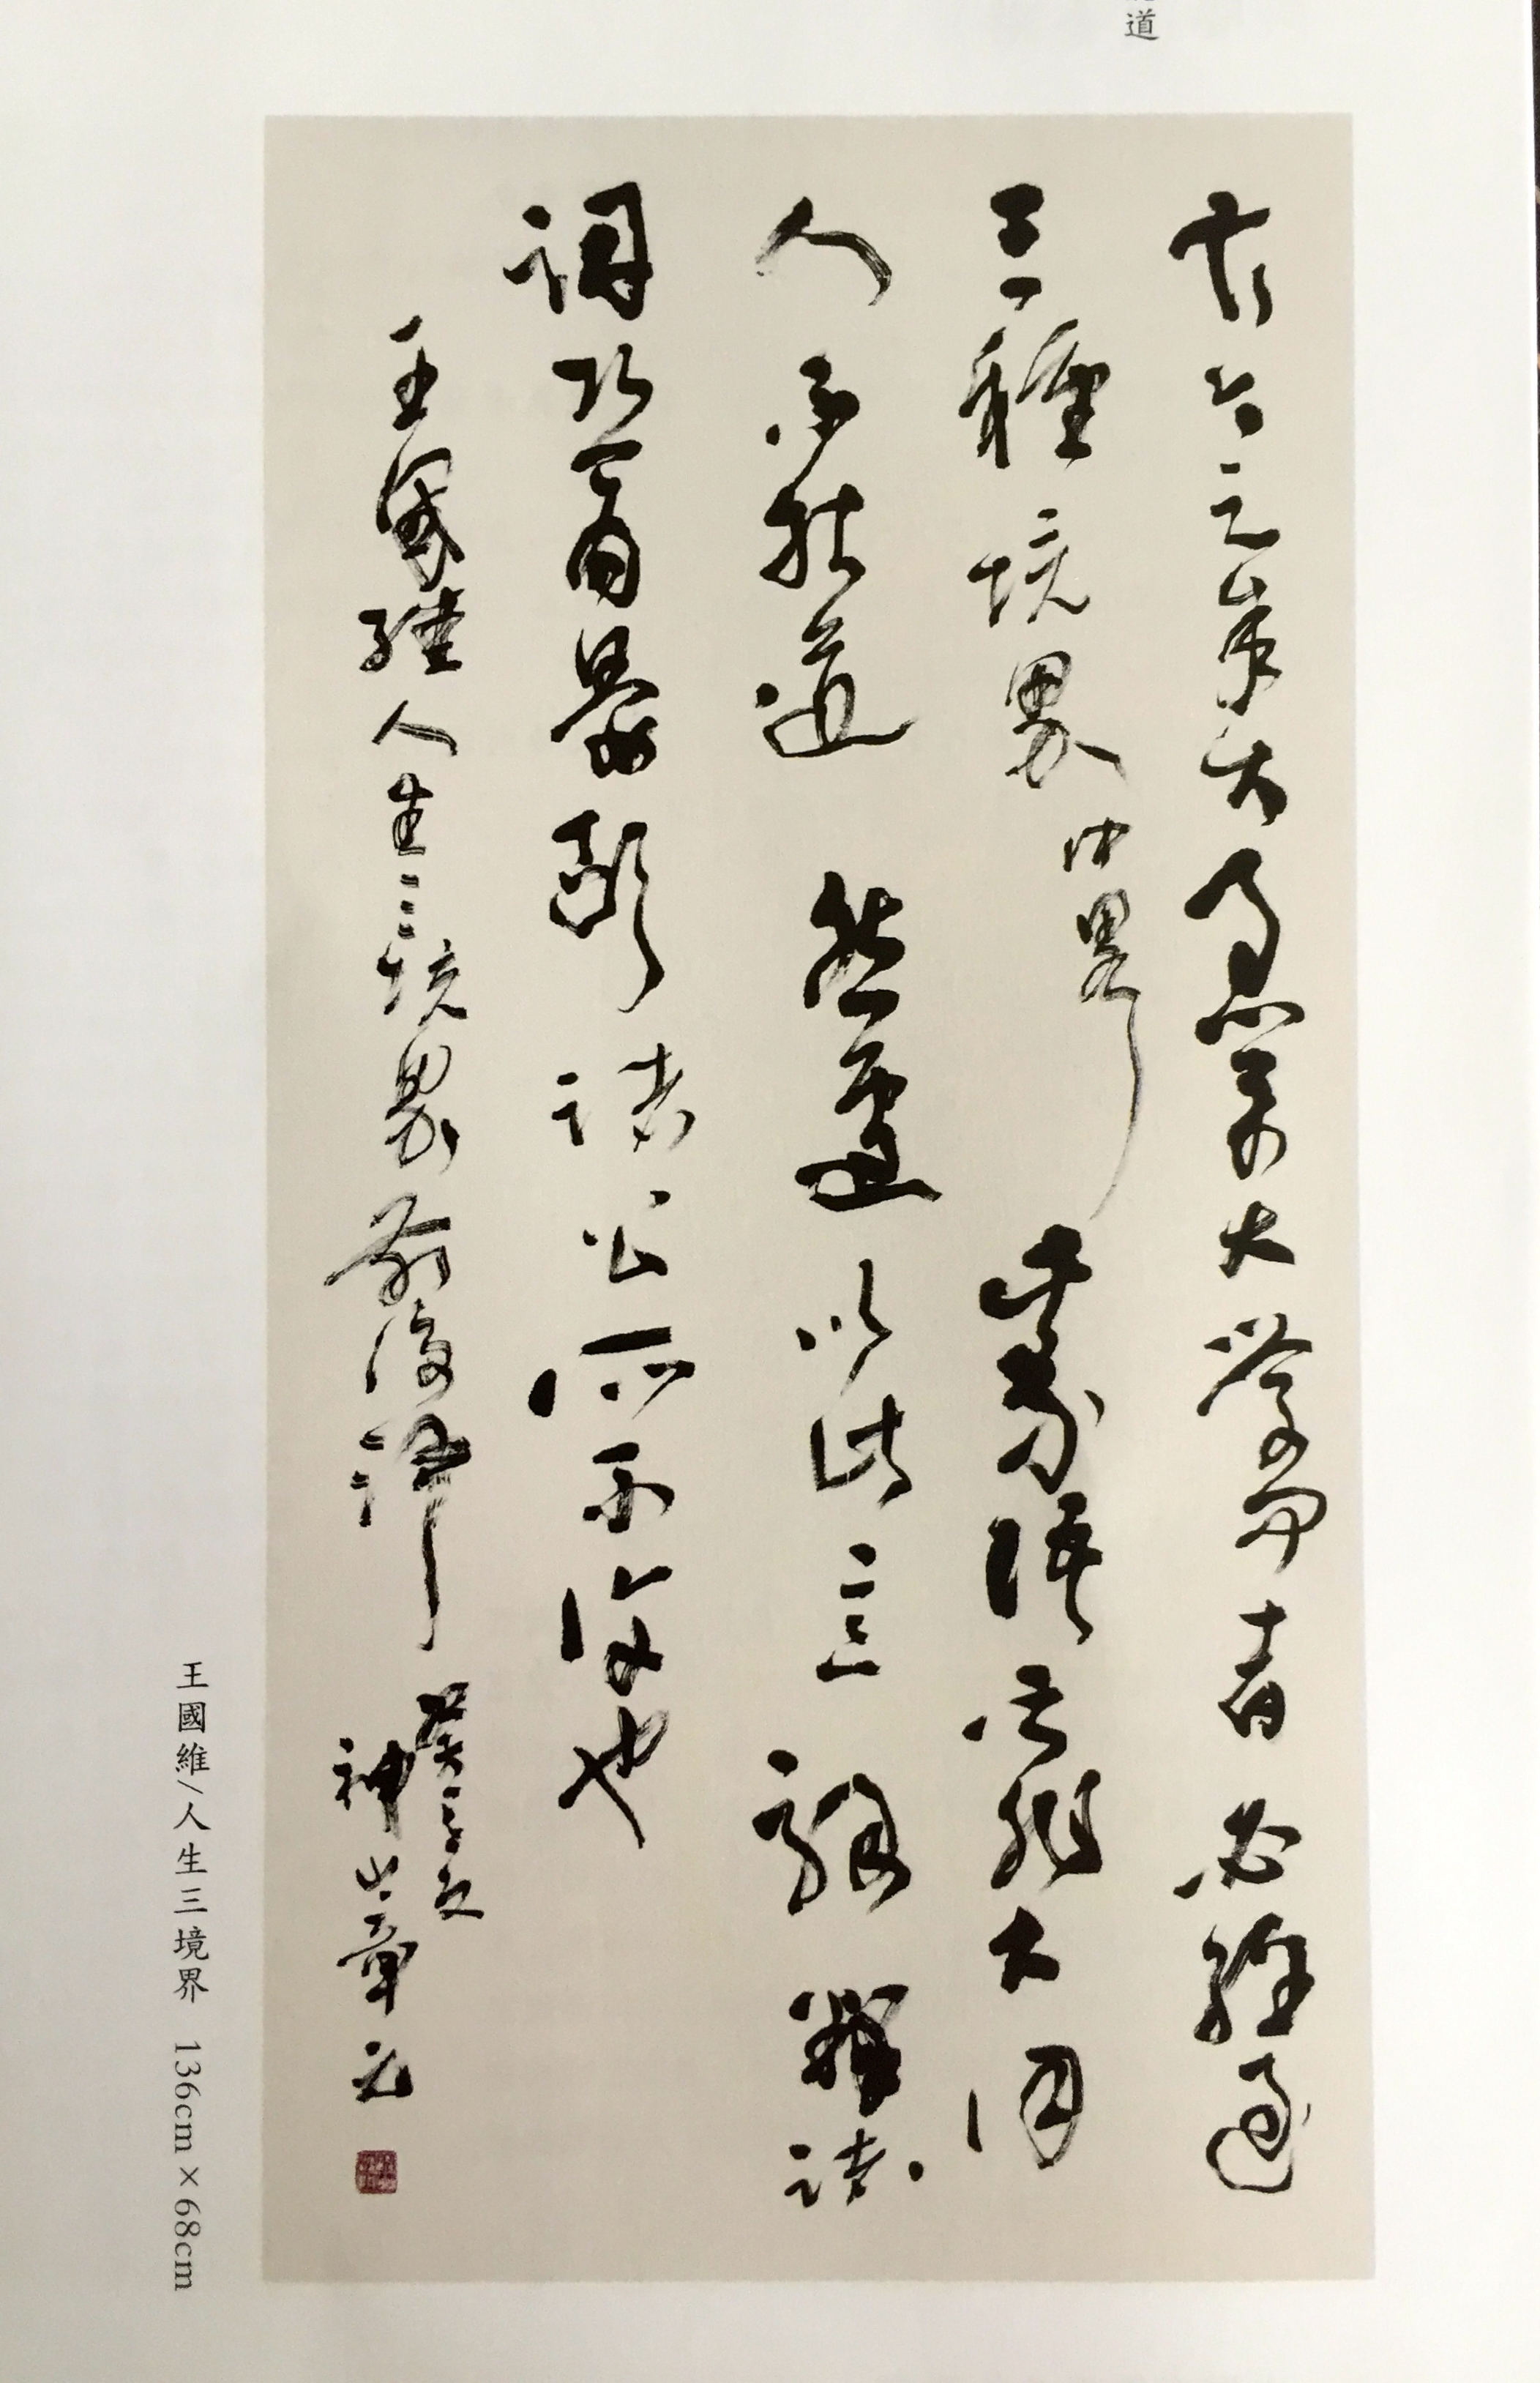 道
古今之成大事業大學問者必經過
三種境界中略此等語皆非大詞
人不能道然遽以此意解釋諸
詞恐為晏歐諸公所不許也
王國維人生三境界前後
神山章
王國維/人生三境界 136cm×68cm